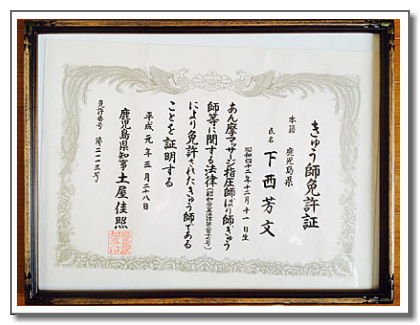 きゅう師免許証
本籍 鹿児島県
氏名 下西芳文
昭和四十二年十二月十一日生
あん摩マッサージ指圧師はり師きゅう
師等に関する法律(昭和二十二年法律第二百十七号)
により免許されたきゅう師である
ことを証明する
平成元年三月二八日
鹿児島県知事 土屋佳照
免許番号